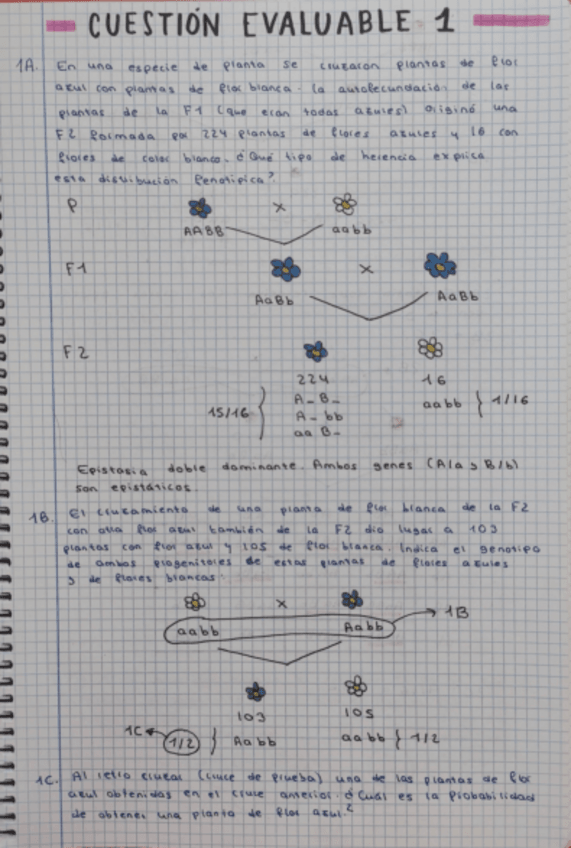 CUESTIÓN EVALUABLE 1
1A. En una especie de planta se cruzaron plantas de flor
azul con plantas de flor blanca. La autofecundación de las
plantas de la F1 (que eran todas azules) originó una
F2 formada por 224 plantas de flores azules y 16 con
flores de color blanco. ¿Qué tipo de herencia explica
esta distribución fenotípica?
P x
AABB aabb
F1 x
AaBb AaBb
F2
224 16
15/16 } A_B_ aabb } 1/16
A_bb
aaB_
Epistasia doble dominante. Ambos genes (A/a y B/b)
son epistáticos.
1B. El cruzamiento de una planta de flor blanca de la F2
con otra flor azul también de la F2 dio lugar a 103
plantas con flor azul y 105 de flor blanca. Indica el genotipo
de ambos progenitores de estas plantas de flores azules
y de flores blancas.
x
aabb Aabb → 1B
103 105
1C ← 1/2 } Aabb aabb } 1/2
1C. Al retro cruzar (cruce de prueba) una de las plantas de flor
azul obtenidas en el cruce anterior. ¿Cuál es la probabilidad
de obtener una planta de flor azul?